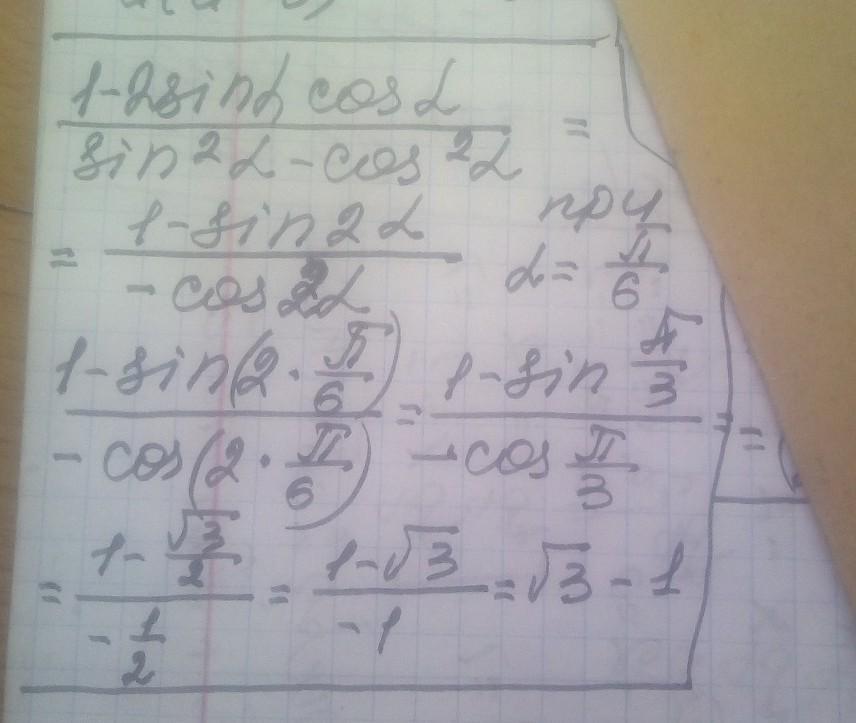 1-2sinα cosα
sin²α-cos²α =
= 1-sin2α
-cos2α
при
α= π/6
1-sin(2·π/6)
-cos(2·π/6) = 1-sin π/3
-cos π/3 =
= 1-√3/2
-1/2 = 1-√3
-1 = √3-1
=